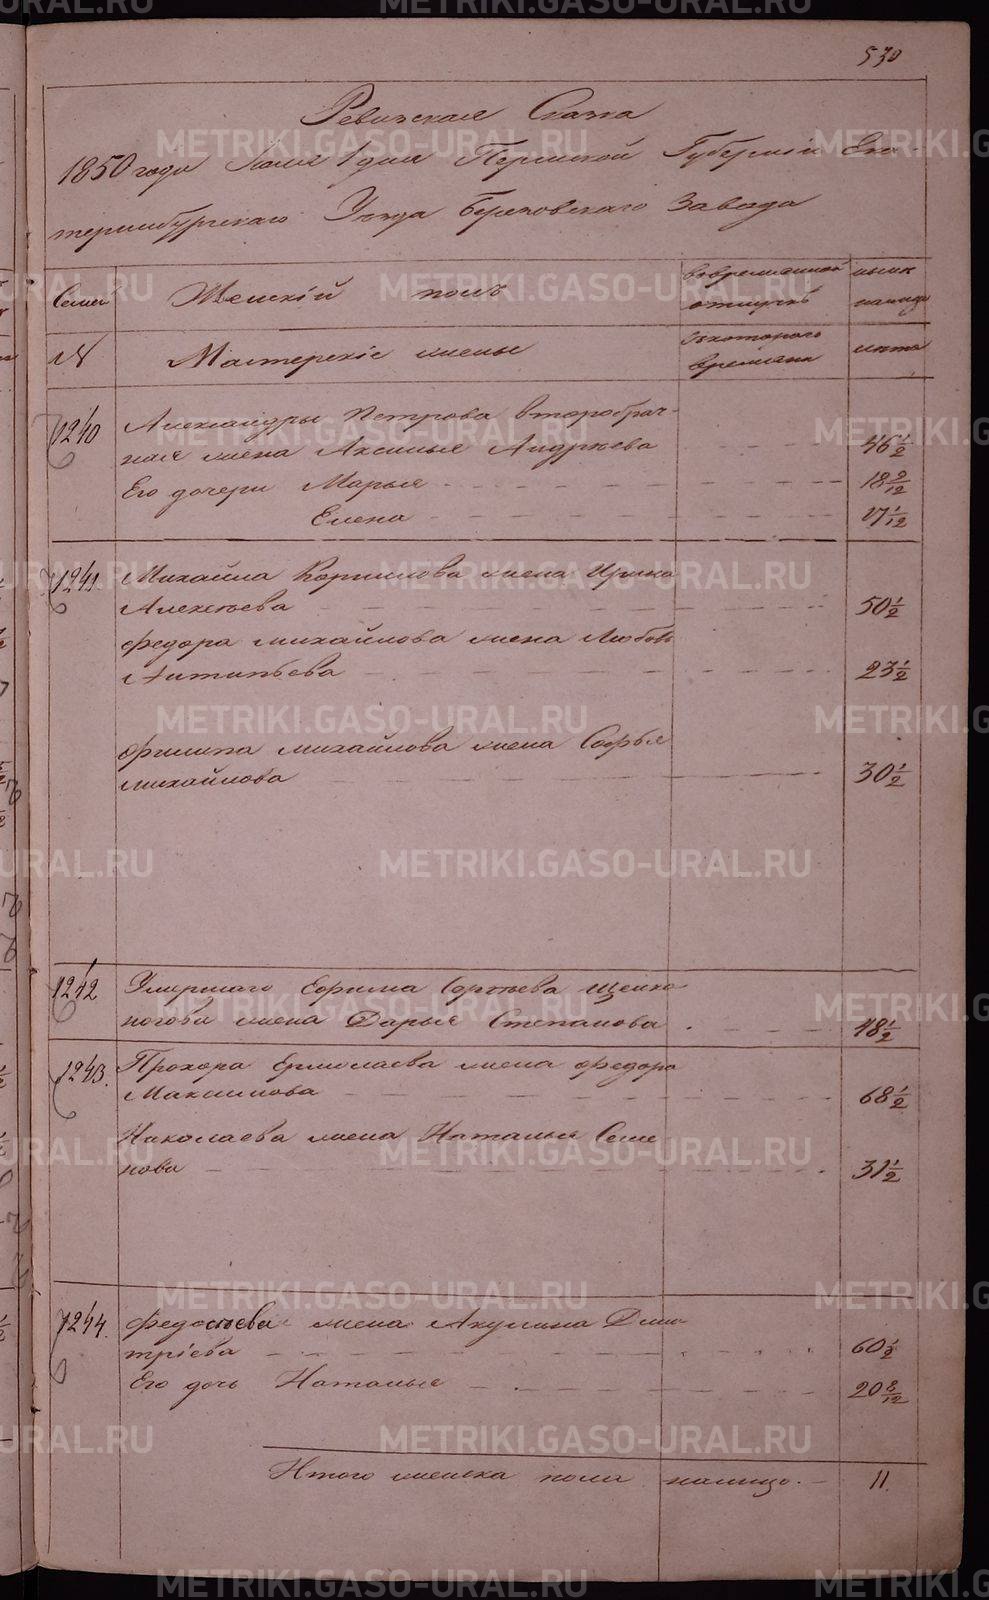 530
Ревизская Сказка
1850 года Июля 1 дня Пермской Губерніи Ека-
теринбургскаго Уѣзда Березовскаго Завода
Семьи Женскій полъ во временной отлучкѣ нынѣ на лицо
№ Мастерскіе жены съ котораго времени лѣта
1240 Александры Петрова второбрач-
ная жена Аксинья Андреева 46 1/2
Его дочери Марья 18 9/12
Елена 17 1/12
1241. Михайла Корнилова жена Ирина
Алексѣева 50 1/2
Федора Михайлова жена Любовь
Антипьева 23 1/2
Филипа Михайлова жена Софья
Михайлова 30 1/2
1242 Умершаго Ефима Сергѣева Щелко
ногова жена Дарья Степанова 48 1/2
1243. Прохора Ермолаева жена Федора
Максимова 68 1/2
Николаева жена Наталья Семе
нова 31 1/2
1244. Федосѣева жена Акулина Дми
тріева 60 1/2
Его дочь Наталья 20 8/12
Итого женска пола на лицо. 11.
METRIKI.GASO-URAL.RU